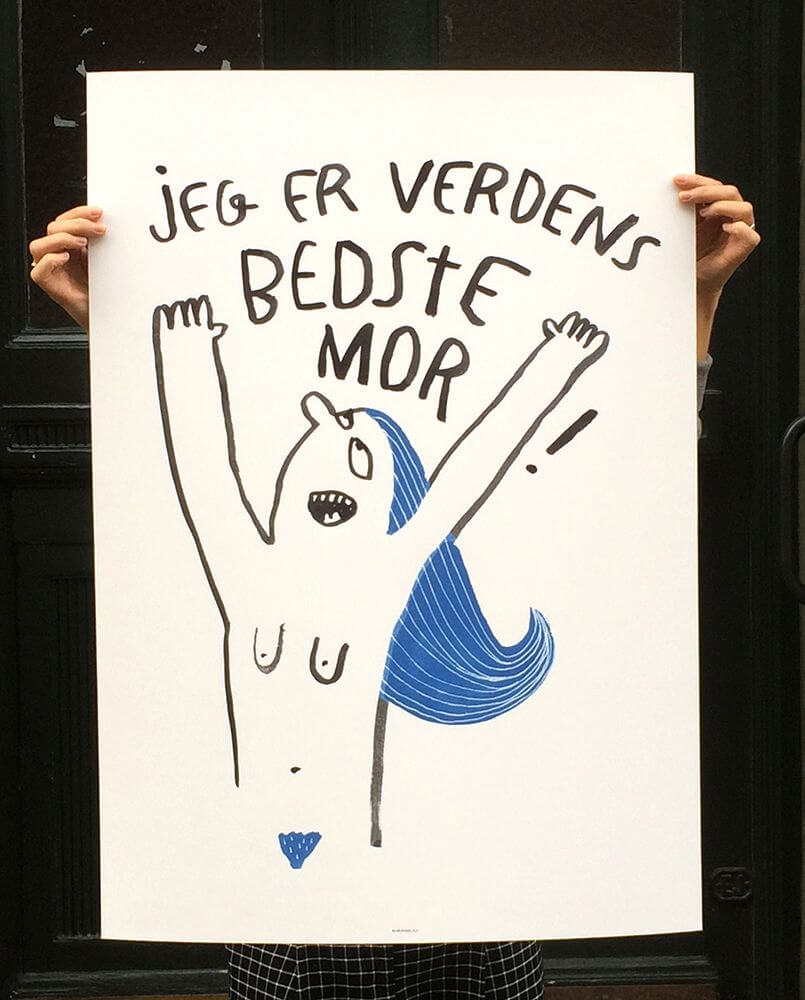 JEG ER VERDENS
BEDSTE
MOR
!